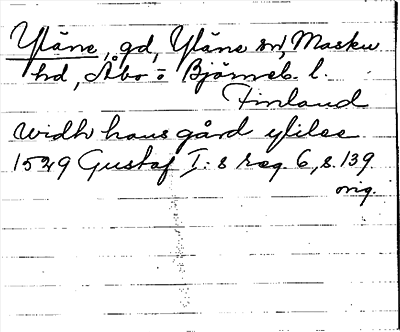 Yläne, gd, Yläne sn, Masku
hd, Åbo o Björneb. l.
Finland
widh hans gård ylilse
1529 Gustaf I:s reg. 6, s. 139
orig.